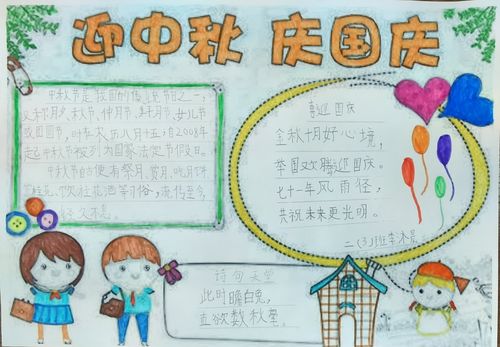 迎中秋 庆国庆
中秋节是我国的传统节日之一,
又称月夕、秋节、仲月节、拜月节、女儿节
或团圆节,时在农历八月十五;自2008年
起中秋节被列为国家法定节假日。
中秋节自古便有祭月、赏月、吃月饼
赏桂花、饮桂花酒等习俗,流传至今,
经久不息。
喜迎国庆
金秋十月好心境,
举国欢腾迎国庆。
七十一年风雨径,
共祝未来更光明。
二(3)班李
诗句天堂
此时瞻白兔,
直欲数秋毫。